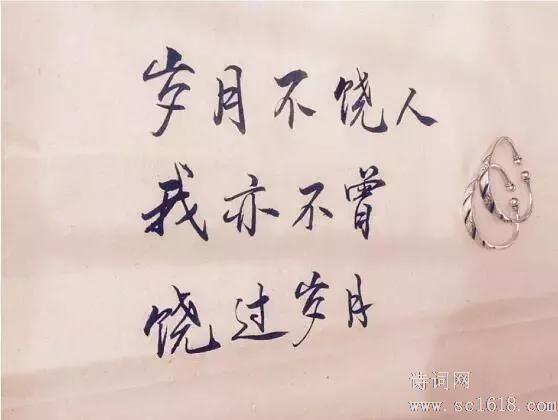 岁月不饶人
我亦不曾
饶过岁月
诗词网
www.sc1618.com